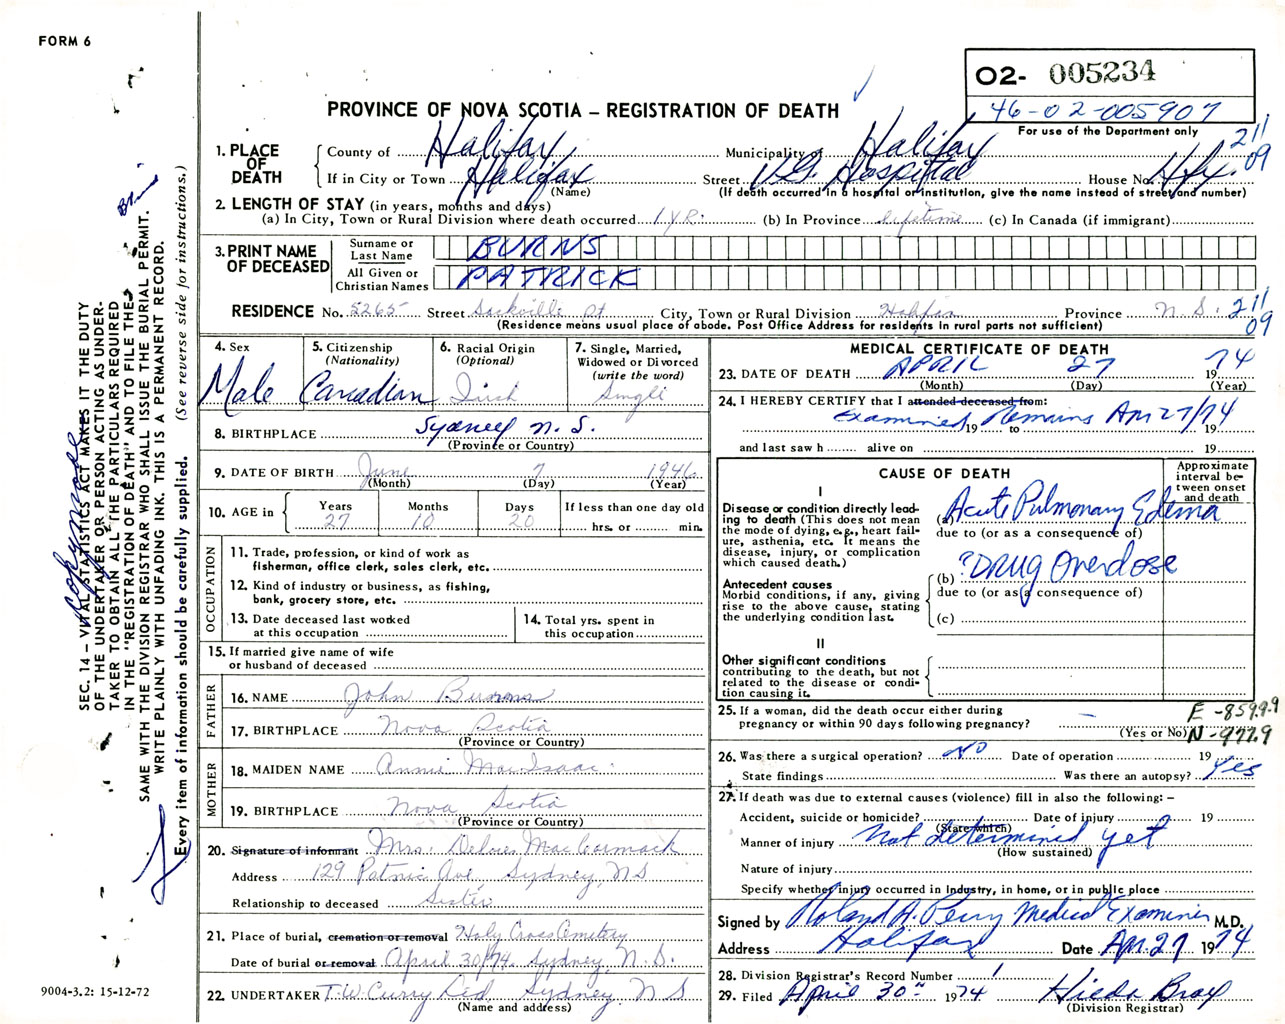 FORM 6
O2- 005234
46-02-005907
For use of the Department only
PROVINCE OF NOVA SCOTIA – REGISTRATION OF DEATH
211
09
1. PLACE OF DEATH
County of Halifax Municipality of Halifax
If in City or Town Halifax Street V.G. Hospital House No. Hfx.
(Name) (If death occurred in a hospital or institution, give the name instead of street and number)
2. LENGTH OF STAY (in years, months and days)
(a) In City, Town or Rural Division where death occurred 1 YR. (b) In Province lifetime (c) In Canada (if immigrant)
3. PRINT NAME OF DECEASED
Surname or Last Name BURNS
All Given or Christian Names PATRICK
RESIDENCE No. 5265 Street Sackville St City, Town or Rural Division Halifax Province N.S. 211
09
(Residence means usual place of abode. Post Office Address for residents in rural parts not sufficient)
4. Sex
Male
5. Citizenship
(Nationality)
Canadian
6. Racial Origin
(Optional)
Irish
7. Single, Married,
Widowed or Divorced
(write the word)
Single
8. BIRTHPLACE Sydney N.S.
(Province or Country)
9. DATE OF BIRTH June 7 1946
(Month) (Day) (Year)
10. AGE in
Years Months Days If less than one day old
27 10 20 hrs. or min.
OCCUPATION
11. Trade, profession, or kind of work as
fisherman, office clerk, sales clerk, etc.
12. Kind of industry or business, as fishing,
bank, grocery store, etc.
13. Date deceased last worked
at this occupation
14. Total yrs. spent in
this occupation
15. If married give name of wife
or husband of deceased
FATHER
16. NAME John Burns
17. BIRTHPLACE Nova Scotia
(Province or Country)
MOTHER
18. MAIDEN NAME Annie MacIsaac
19. BIRTHPLACE Nova Scotia
(Province or Country)
20. Signature of informant Mrs. Delores MacCormack
Address 129 Ave, Sydney, NS
Relationship to deceased Sister
21. Place of burial, cremation or removal Holy Cross Cemetery
Date of burial or removal April 30/74. Sydney, N.S.
22. UNDERTAKER T.W. Curry Ltd Sydney, N S
(Name and address)
MEDICAL CERTIFICATE OF DEATH
23. DATE OF DEATH APRIL 27 1974
(Month) (Day) (Year)
24. I HEREBY CERTIFY that I attended deceased from:
Examined Remains Apr 27/74
19 to 19
and last saw h alive on 19
CAUSE OF DEATH
Approximate interval between onset and death
I
Disease or condition directly leading to death (This does not mean the mode of dying, e.g., heart failure, asthenia, etc. It means the disease, injury, or complication which caused death.)
(a) Acute Pulmonary Edema
due to (or as a consequence of)
Antecedent causes
Morbid conditions, if any, giving rise to the above cause, stating the underlying condition last.
(b) ?DRUG Overdose
due to (or as a consequence of)
(c)
II
Other significant conditions
contributing to the death, but not related to the disease or condition causing it.
25. If a woman, did the death occur either during
pregnancy or within 90 days following pregnancy? –
(Yes or No)
E -859.9
N -977.9
26. Was there a surgical operation? NO Date of operation 19
State findings Was there an autopsy? Yes
27. If death was due to external causes (violence) fill in also the following: –
Accident, suicide or homicide? Date of injury ? 19
(State which)
Manner of injury Not determined yet
(How sustained)
Nature of injury
Specify whether injury occurred in Industry, in home, or in public place
Signed by Roland A. Perry Medical Examiner M.D.
Address Halifax Date Apr. 27 1974
28. Division Registrar's Record Number 1
29. Filed April 30th 1974 Hilda Bray
(Division Registrar)
SEC. 14 – VITAL STATISTICS ACT MAKES IT THE DUTY
OF THE UNDERTAKER OR PERSON ACTING AS UNDER-
TAKER TO OBTAIN ALL THE PARTICULARS REQUIRED
IN THE "REGISTRATION OF DEATH" AND TO FILE THE
SAME WITH THE DIVISION REGISTRAR WHO SHALL ISSUE THE BURIAL PERMIT.
WRITE PLAINLY WITH UNFADING INK. THIS IS A PERMANENT RECORD.
Every item of information should be carefully supplied. (See reverse side for instructions.)
9004-3.2: 15-12-72